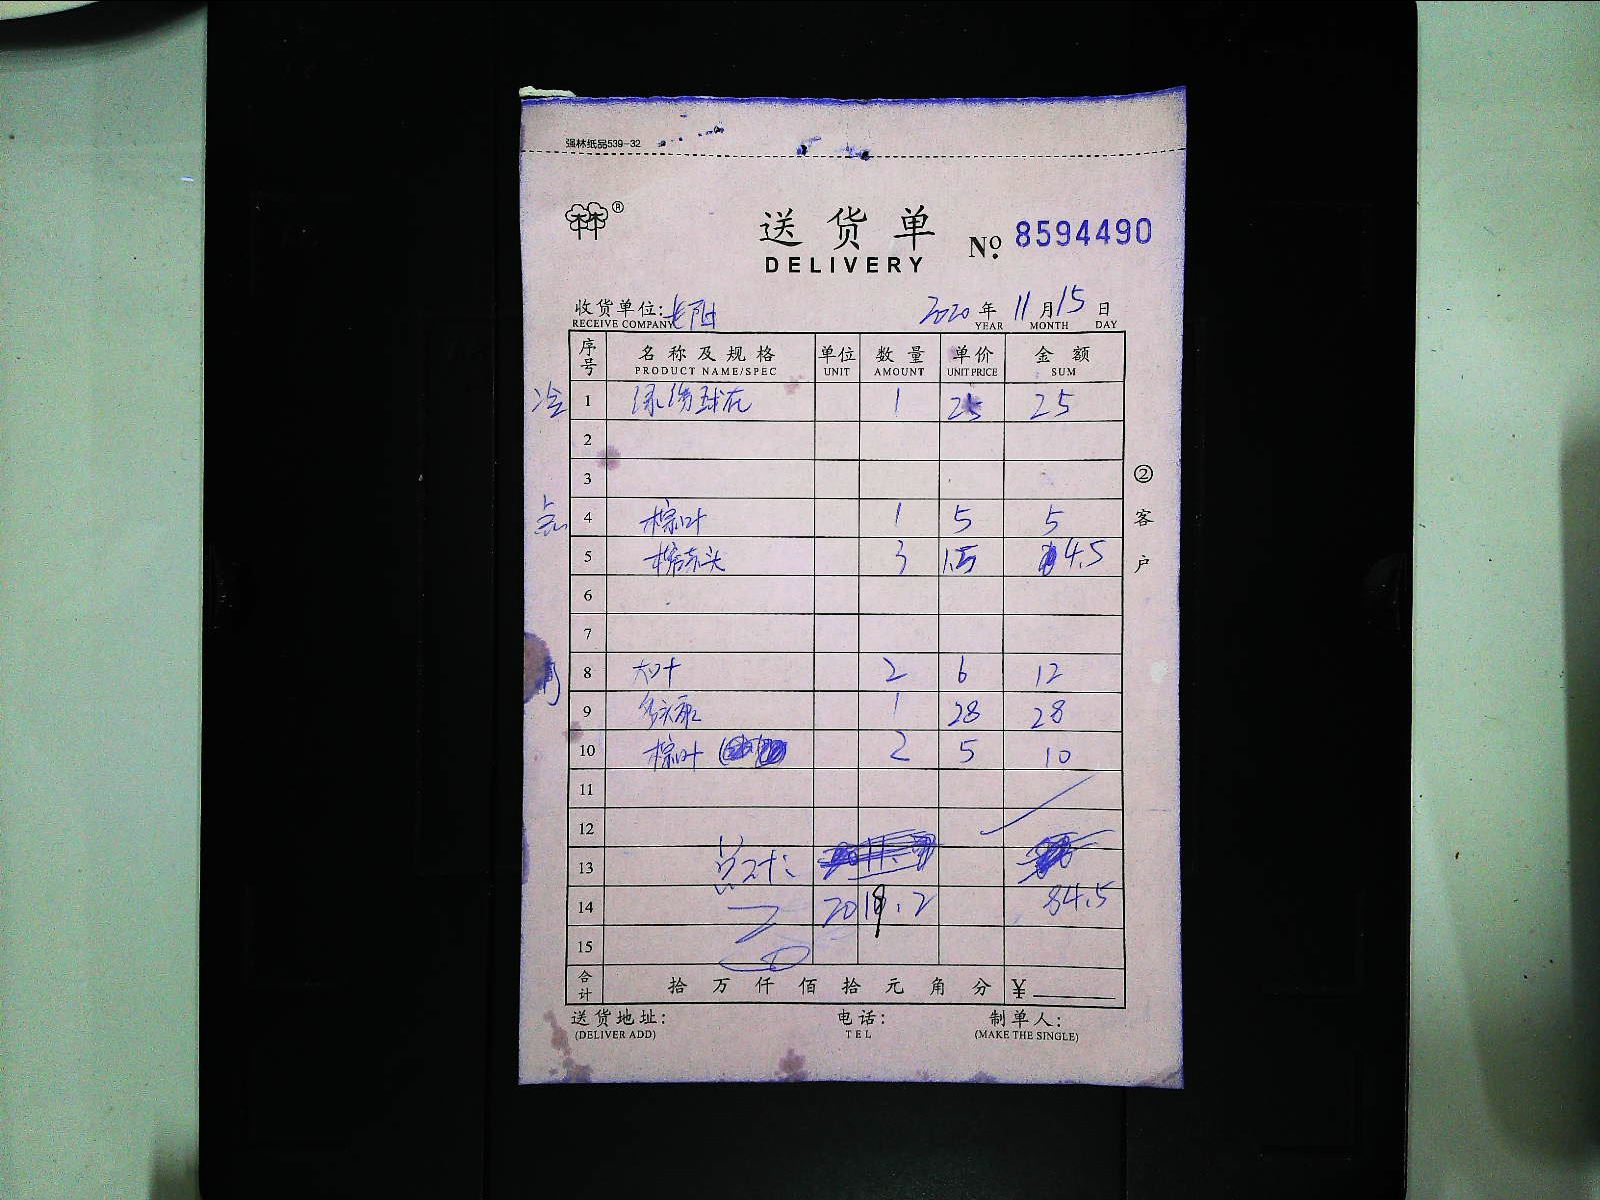 强林纸品539-32
林林®
送货单
DELIVERY
No. 8594490
收货单位: 2020年11月15日
RECEIVE COMPANY YEAR MONTH DAY
序号 名称及规格 单位 数量 单价 金额
PRODUCT NAME/SPEC UNIT AMOUNT UNIT PRICE SUM
冷 1 1 25 25
2
3
点 4 棕叶 1 5 5
5 3 1.5 4.5
6
7
8 大叶 2 6 12
9 1 28 28
10 棕叶 2 5 10
11
12
13 总计:
14 2019.2 84.5
15
合计 拾万仟佰拾元角分 ¥
送货地址: 电话: 制单人:
(DELIVER ADD) TEL (MAKE THE SINGLE)
②客户